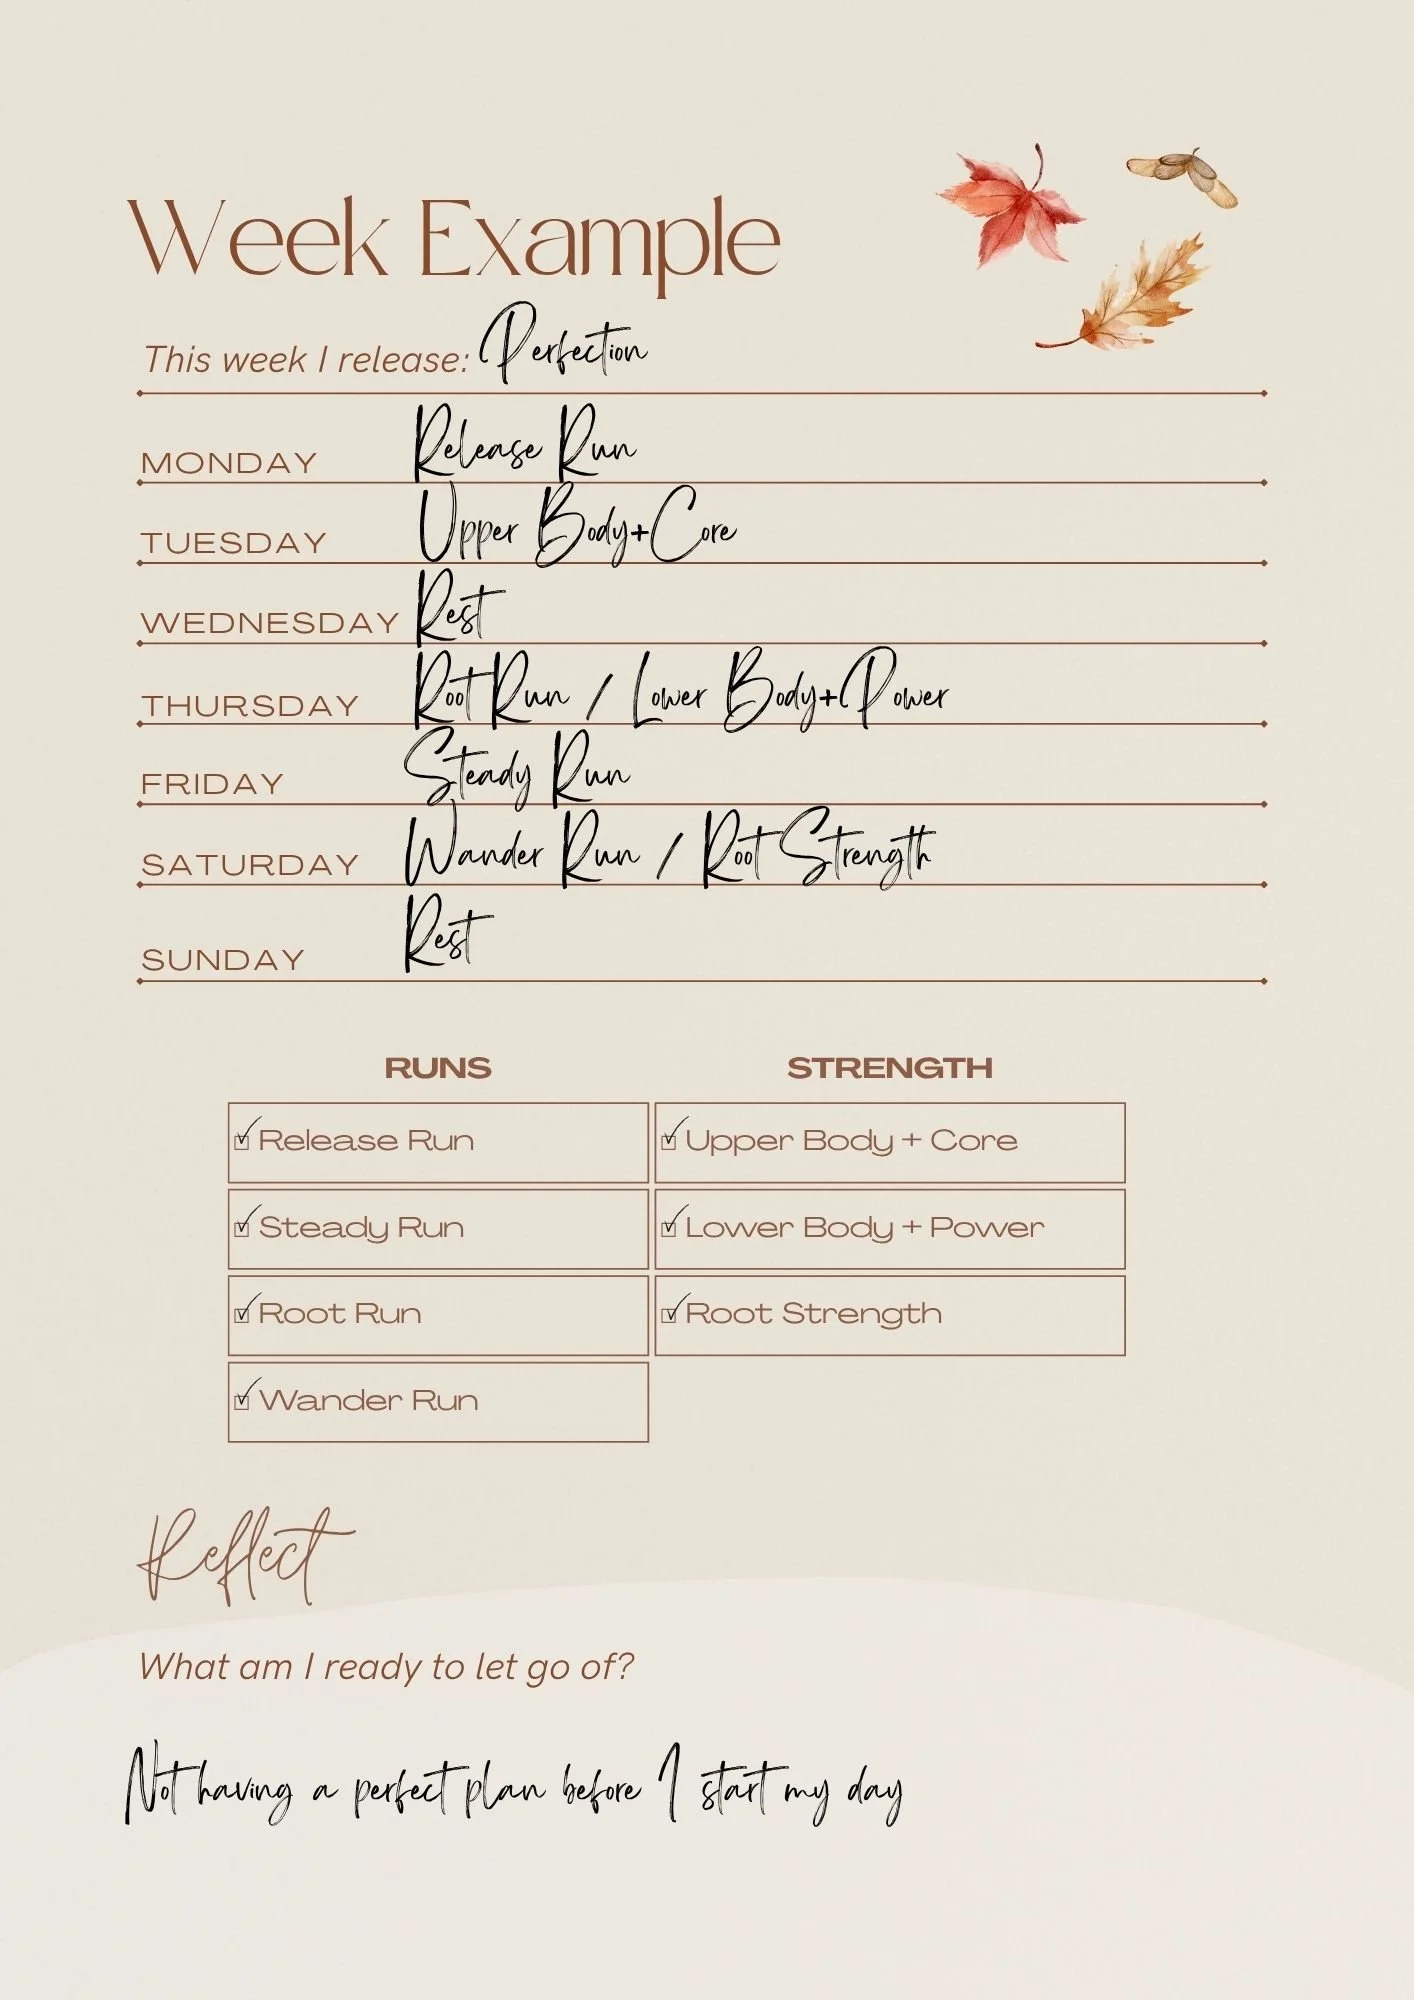 Week Example
This week I release: Perfection
MONDAY Release Run
TUESDAY Upper Body+Core
WEDNESDAY Rest
THURSDAY Root Run / Lower Body+Power
FRIDAY Steady Run
SATURDAY Wander Run / Root Strength
SUNDAY Rest
RUNS STRENGTH
☑ Release Run ☑ Upper Body + Core
☑ Steady Run ☑ Lower Body + Power
☑ Root Run ☑ Root Strength
☑ Wander Run
Reflect
What am I ready to let go of?
Not having a perfect plan before I start my day